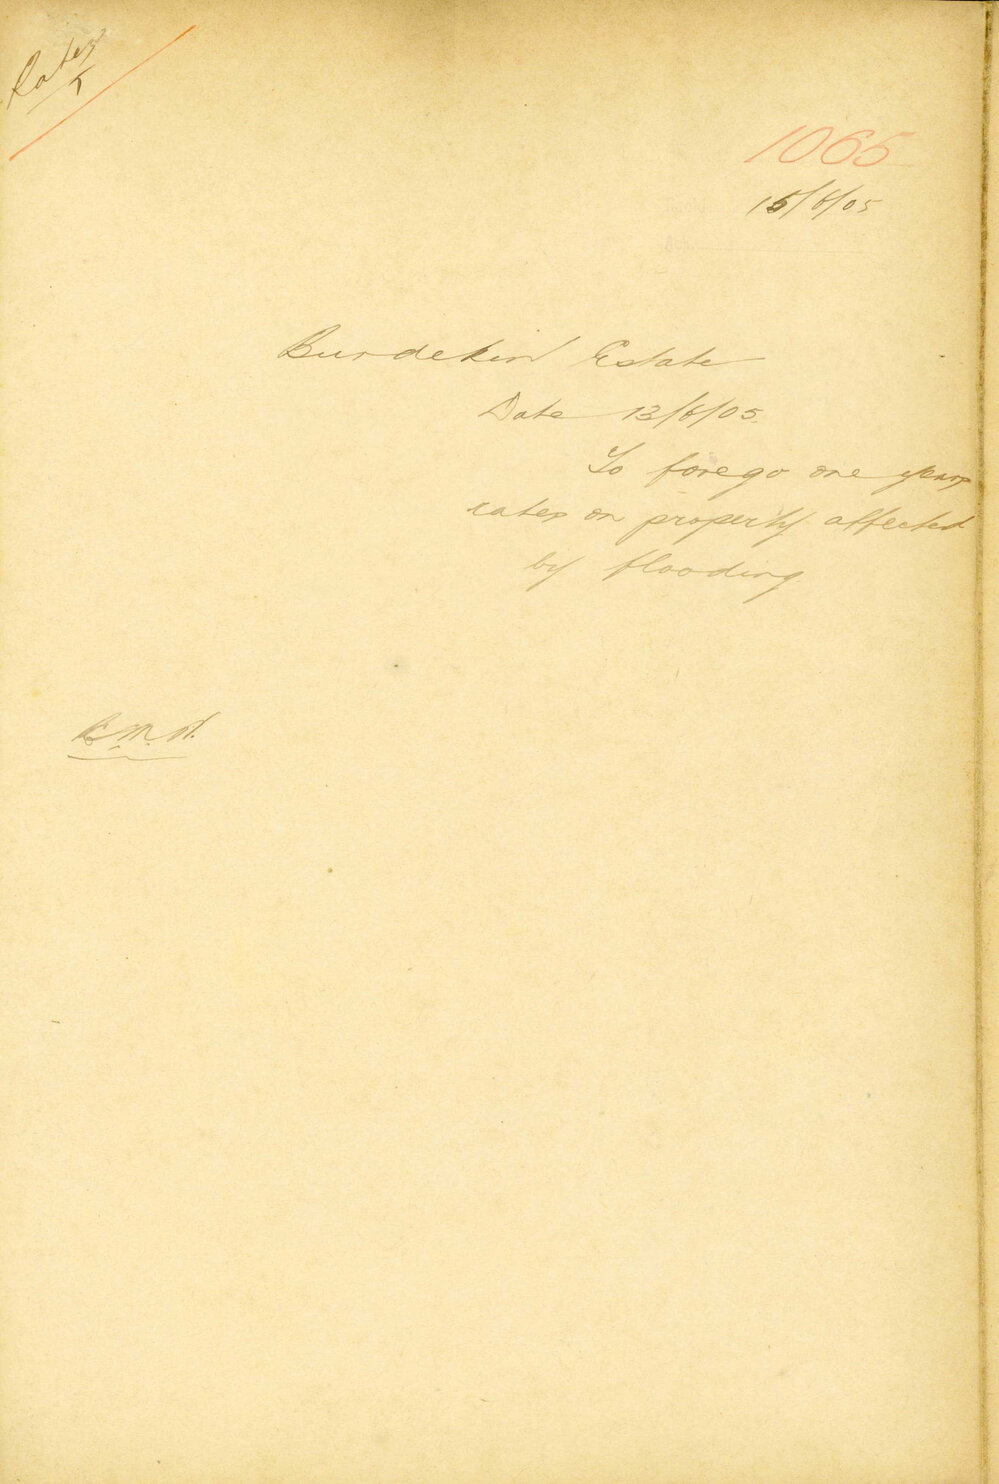 Rates
1065
15/6/05
Burdekin Estate
Date 13/6/05.
To forego one years
rates on property affected
by flooding